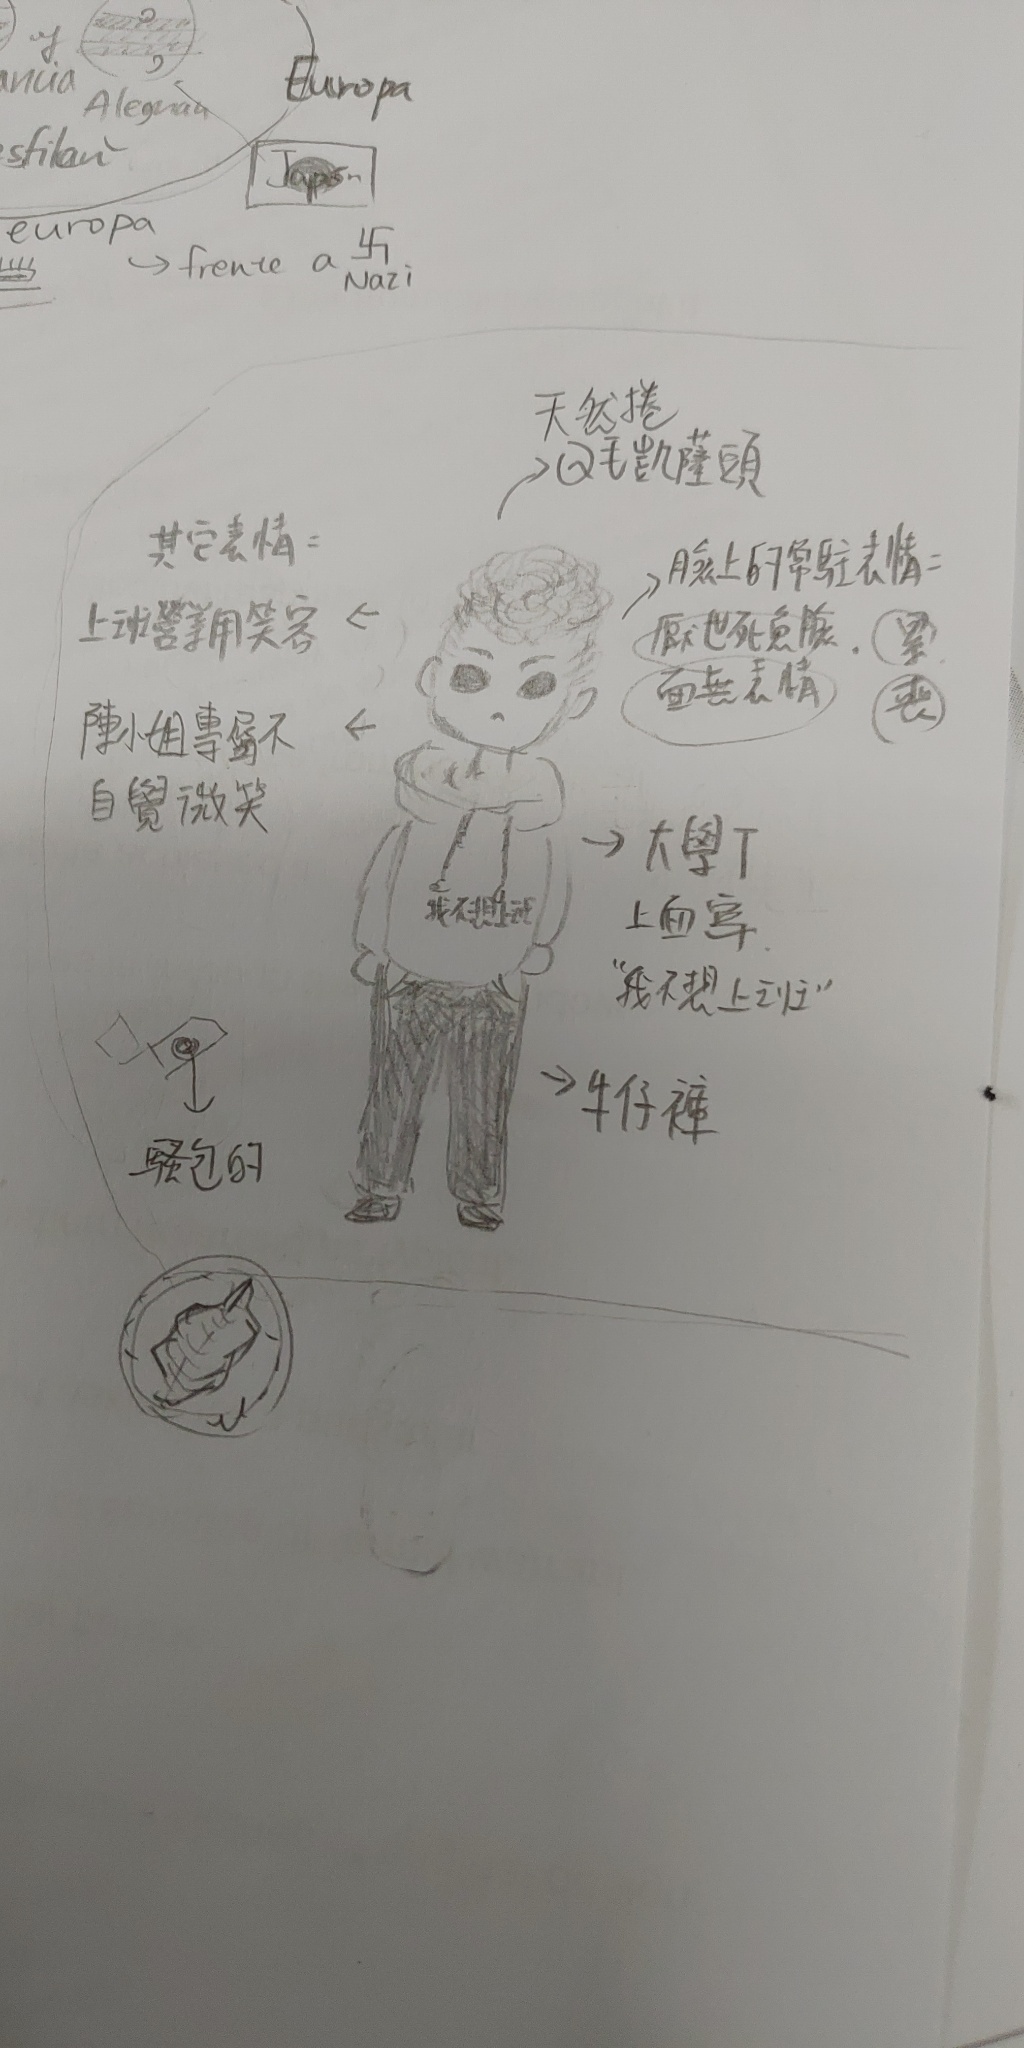 y
ancia
Alegnan
Europa
Japón
europa
→ frente a 卐
Nazi
天然捲
→Q毛凱薩頭
其它表情=
上班營業用笑容 ←
陳小姐專屬不 ←
自覺微笑
→臉上的常駐表情=
厭世死魚臉. 累
面無表情 喪
我不想上班
→ 大學T
上面寫
"我不想上班"
→牛仔褲
騷包的